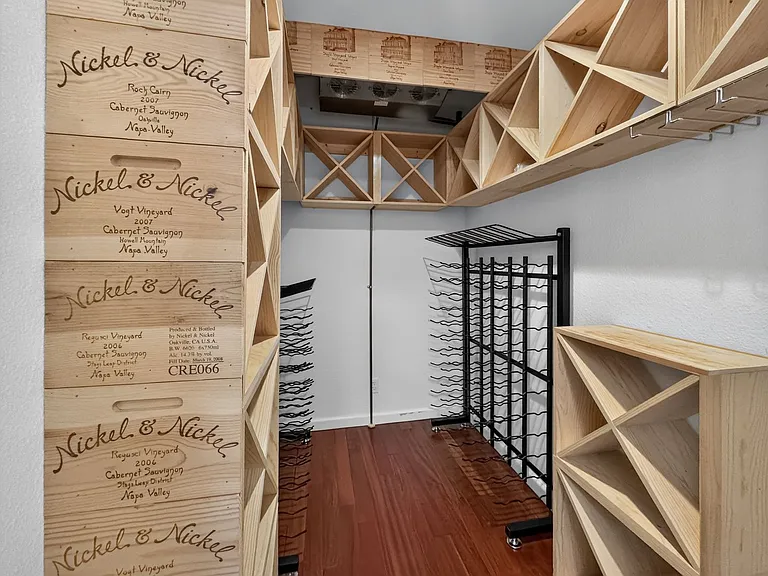 Howell Mountain
Napa Valley
Nickel & Nickel
Rock Cairn
2007
Cabernet Sauvignon
Oakville
Napa Valley
Nickel & Nickel
Vogt Vineyard
2007
Cabernet Sauvignon
Howell Mountain
Napa Valley
Nickel & Nickel
Regusci Vineyard
2006
Cabernet Sauvignon
Stags Leap District
Napa Valley
Produced & Bottled
by Nickel & Nickel
Oakville, CA U.S.A.
Alc. 14.7% by vol.
Fill Date: March 18, 2008
CRE066
Nickel & Nickel
Regusci Vineyard
2006
Cabernet Sauvignon
Stags Leap District
Napa Valley
Nickel & Nickel
Vogt Vineyard